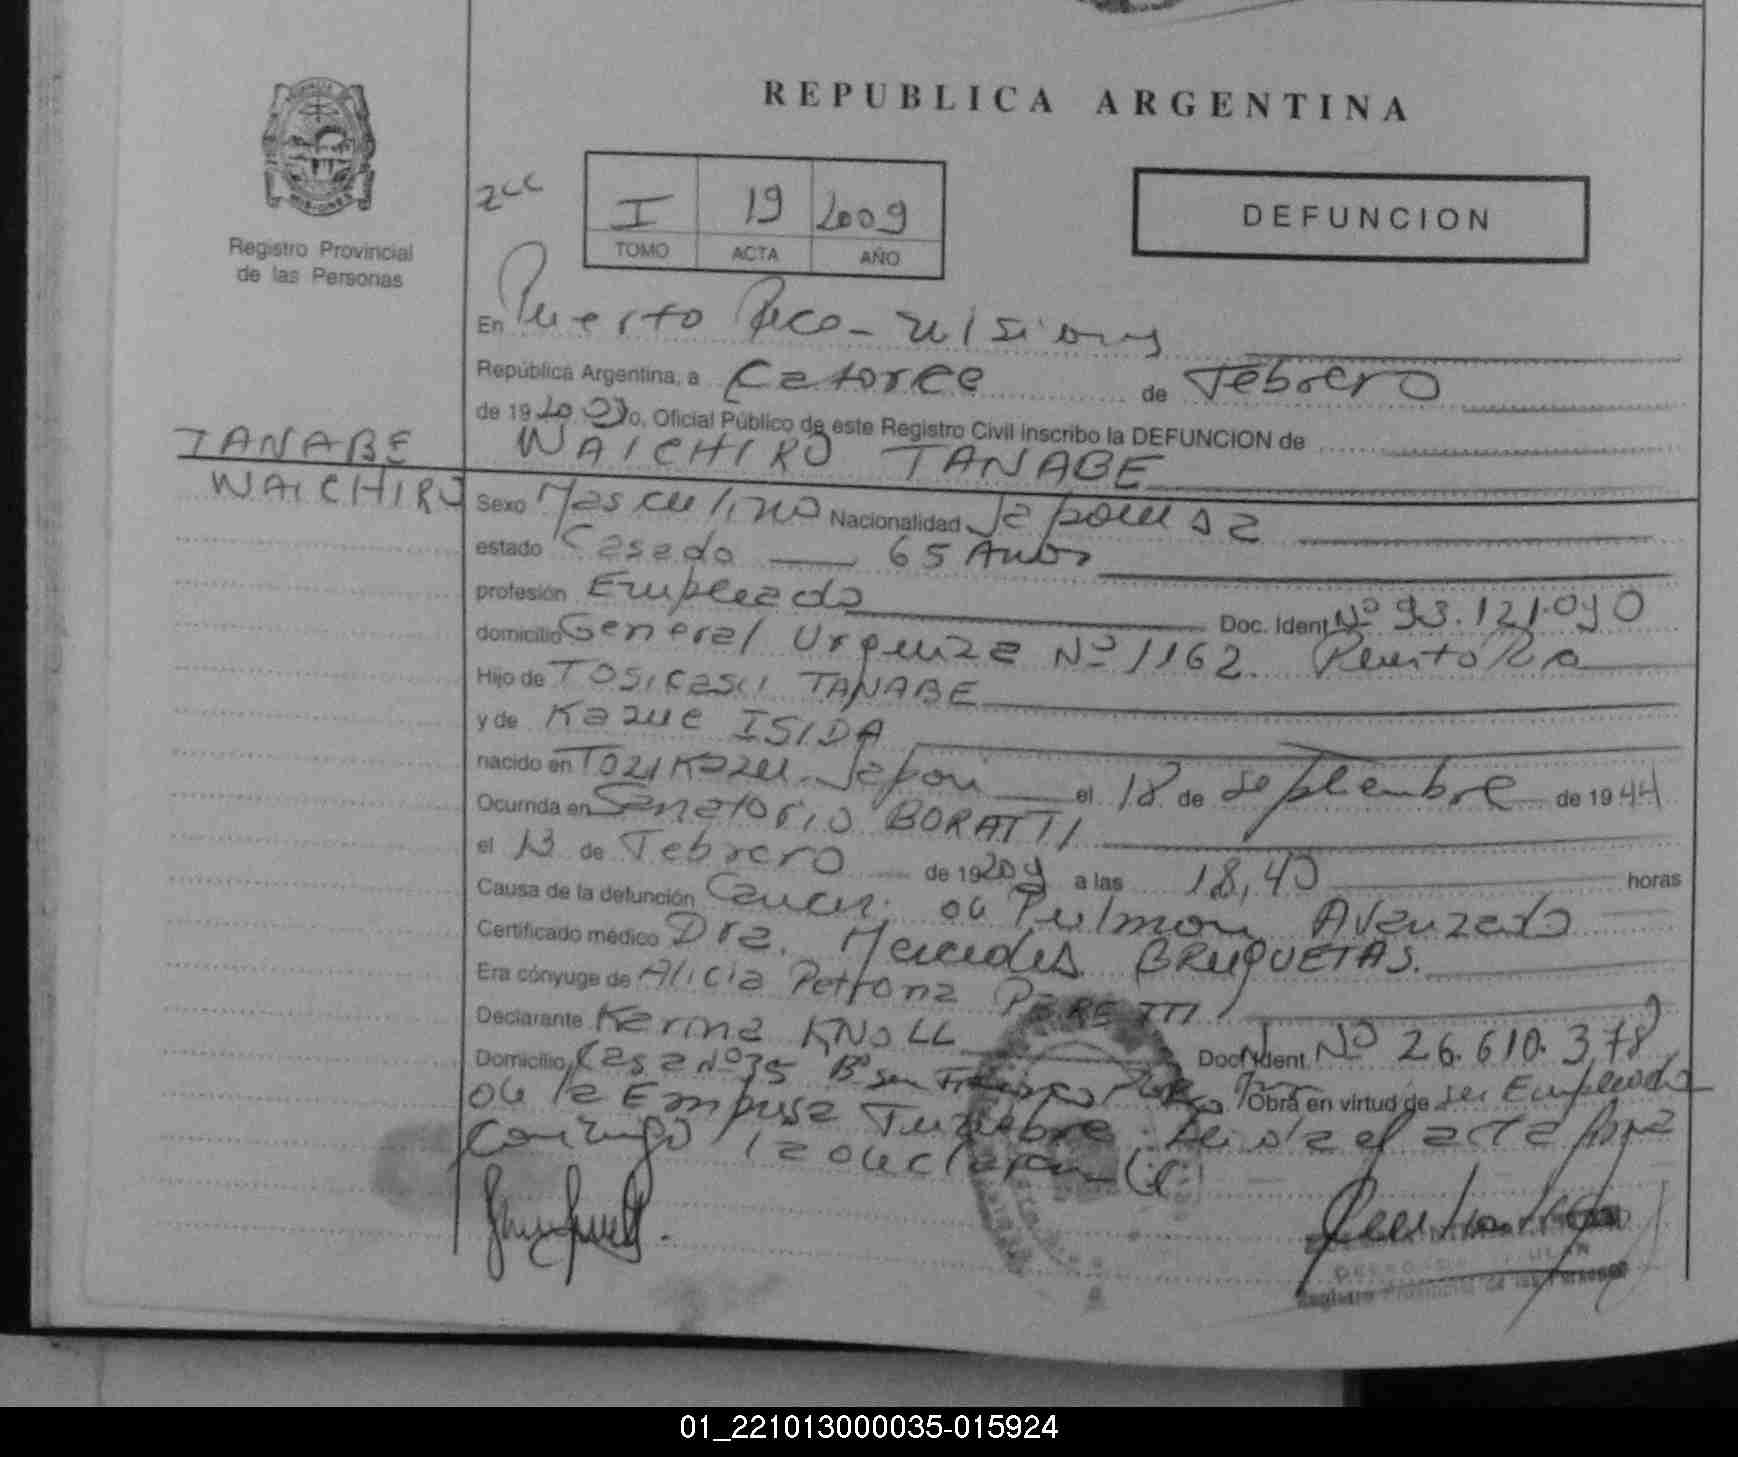 REPUBLICA ARGENTINA
I 19 2009
TOMO ACTA AÑO
DEFUNCION
MISIONES
Registro Provincial
de las Personas
En Puerto Rico - Misiones
República Argentina, a Catorce de Febrero
de 19 2009 yo, Oficial Público de este Registro Civil inscribo la DEFUNCION de
WAICHIRO TANABE
TANABE
WAICHIRO
Sexo Masculino Nacionalidad Japonesa
estado Casado 65 Años
profesión Empleado Doc. Ident Nº 93.121.090
domicilio General Urquiza Nº 1162. Puerto Rico
Hijo de TOSICASU TANABE
y de Kazue ISIDA
nacido en Japon el 18 de septiembre de 1944
Ocurrida en Sanatorio BORATTI
el 13 de Febrero de 19 2009 a las 18,40 horas
Causa de la defunción Cancer de Pulmon Avanzado
Certificado médico Dra. Mercedes BRUQUETAS.
Era cónyuge de Alicia Petrona PERETTI
Declarante Karina KNOLL Doc. Ident Nº 26.610.378
Domicilio Casa nº 35 Bº San Obra en virtud de ser Empleada
de la Empresa Funebre. Leida el acta firma
conmigo la declarante
Registro Provincial de las Personas
01_221013000035-015924